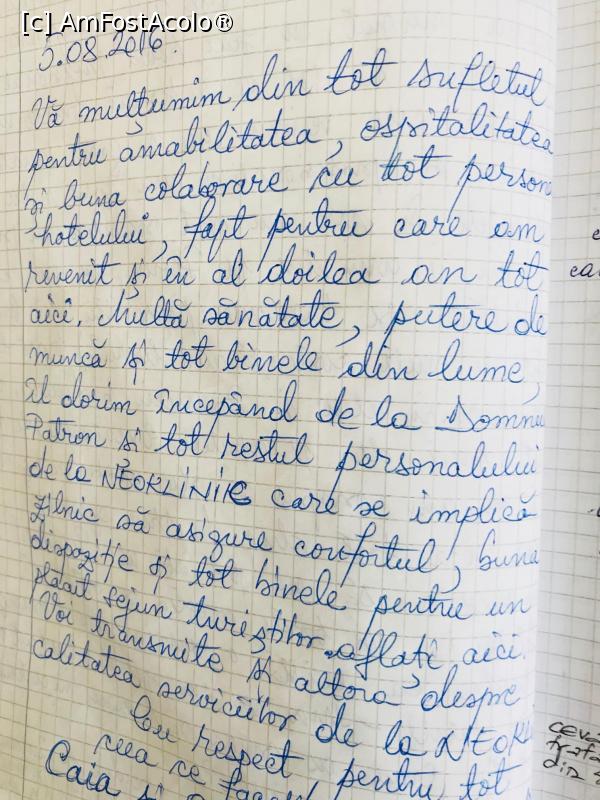 [c] AmFostAcolo®
5.08.2016.
Vă mulțumim din tot sufletul
pentru amabilitatea, ospitalitatea
și buna colaborare cu tot person
hotelului, fapt pentru care am
revenit și în al doilea an tot
aici. Multă sănătate, putere de
muncă și tot binele din lume,
îl dorim începând de la Domnu
Patron și tot restul personalului
de la NEOKLINIK care se implică
zilnic să asigure confortul, buna
dispoziție și tot binele pentru un
plăcut sejun turiștilor aflați aici.
Voi transmite și altora despre
calitatea serviciilor de la NEOKL
Cu respect, pentru tot
ceea ce
Caia și
ceva
din